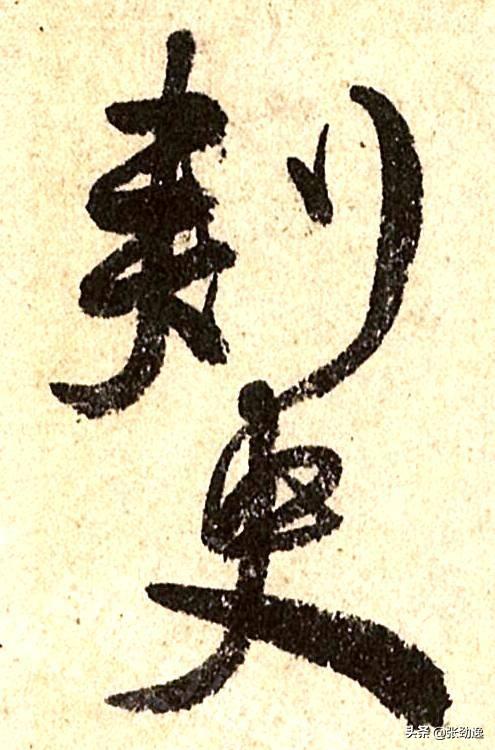 刺史
头条 @张劲逸